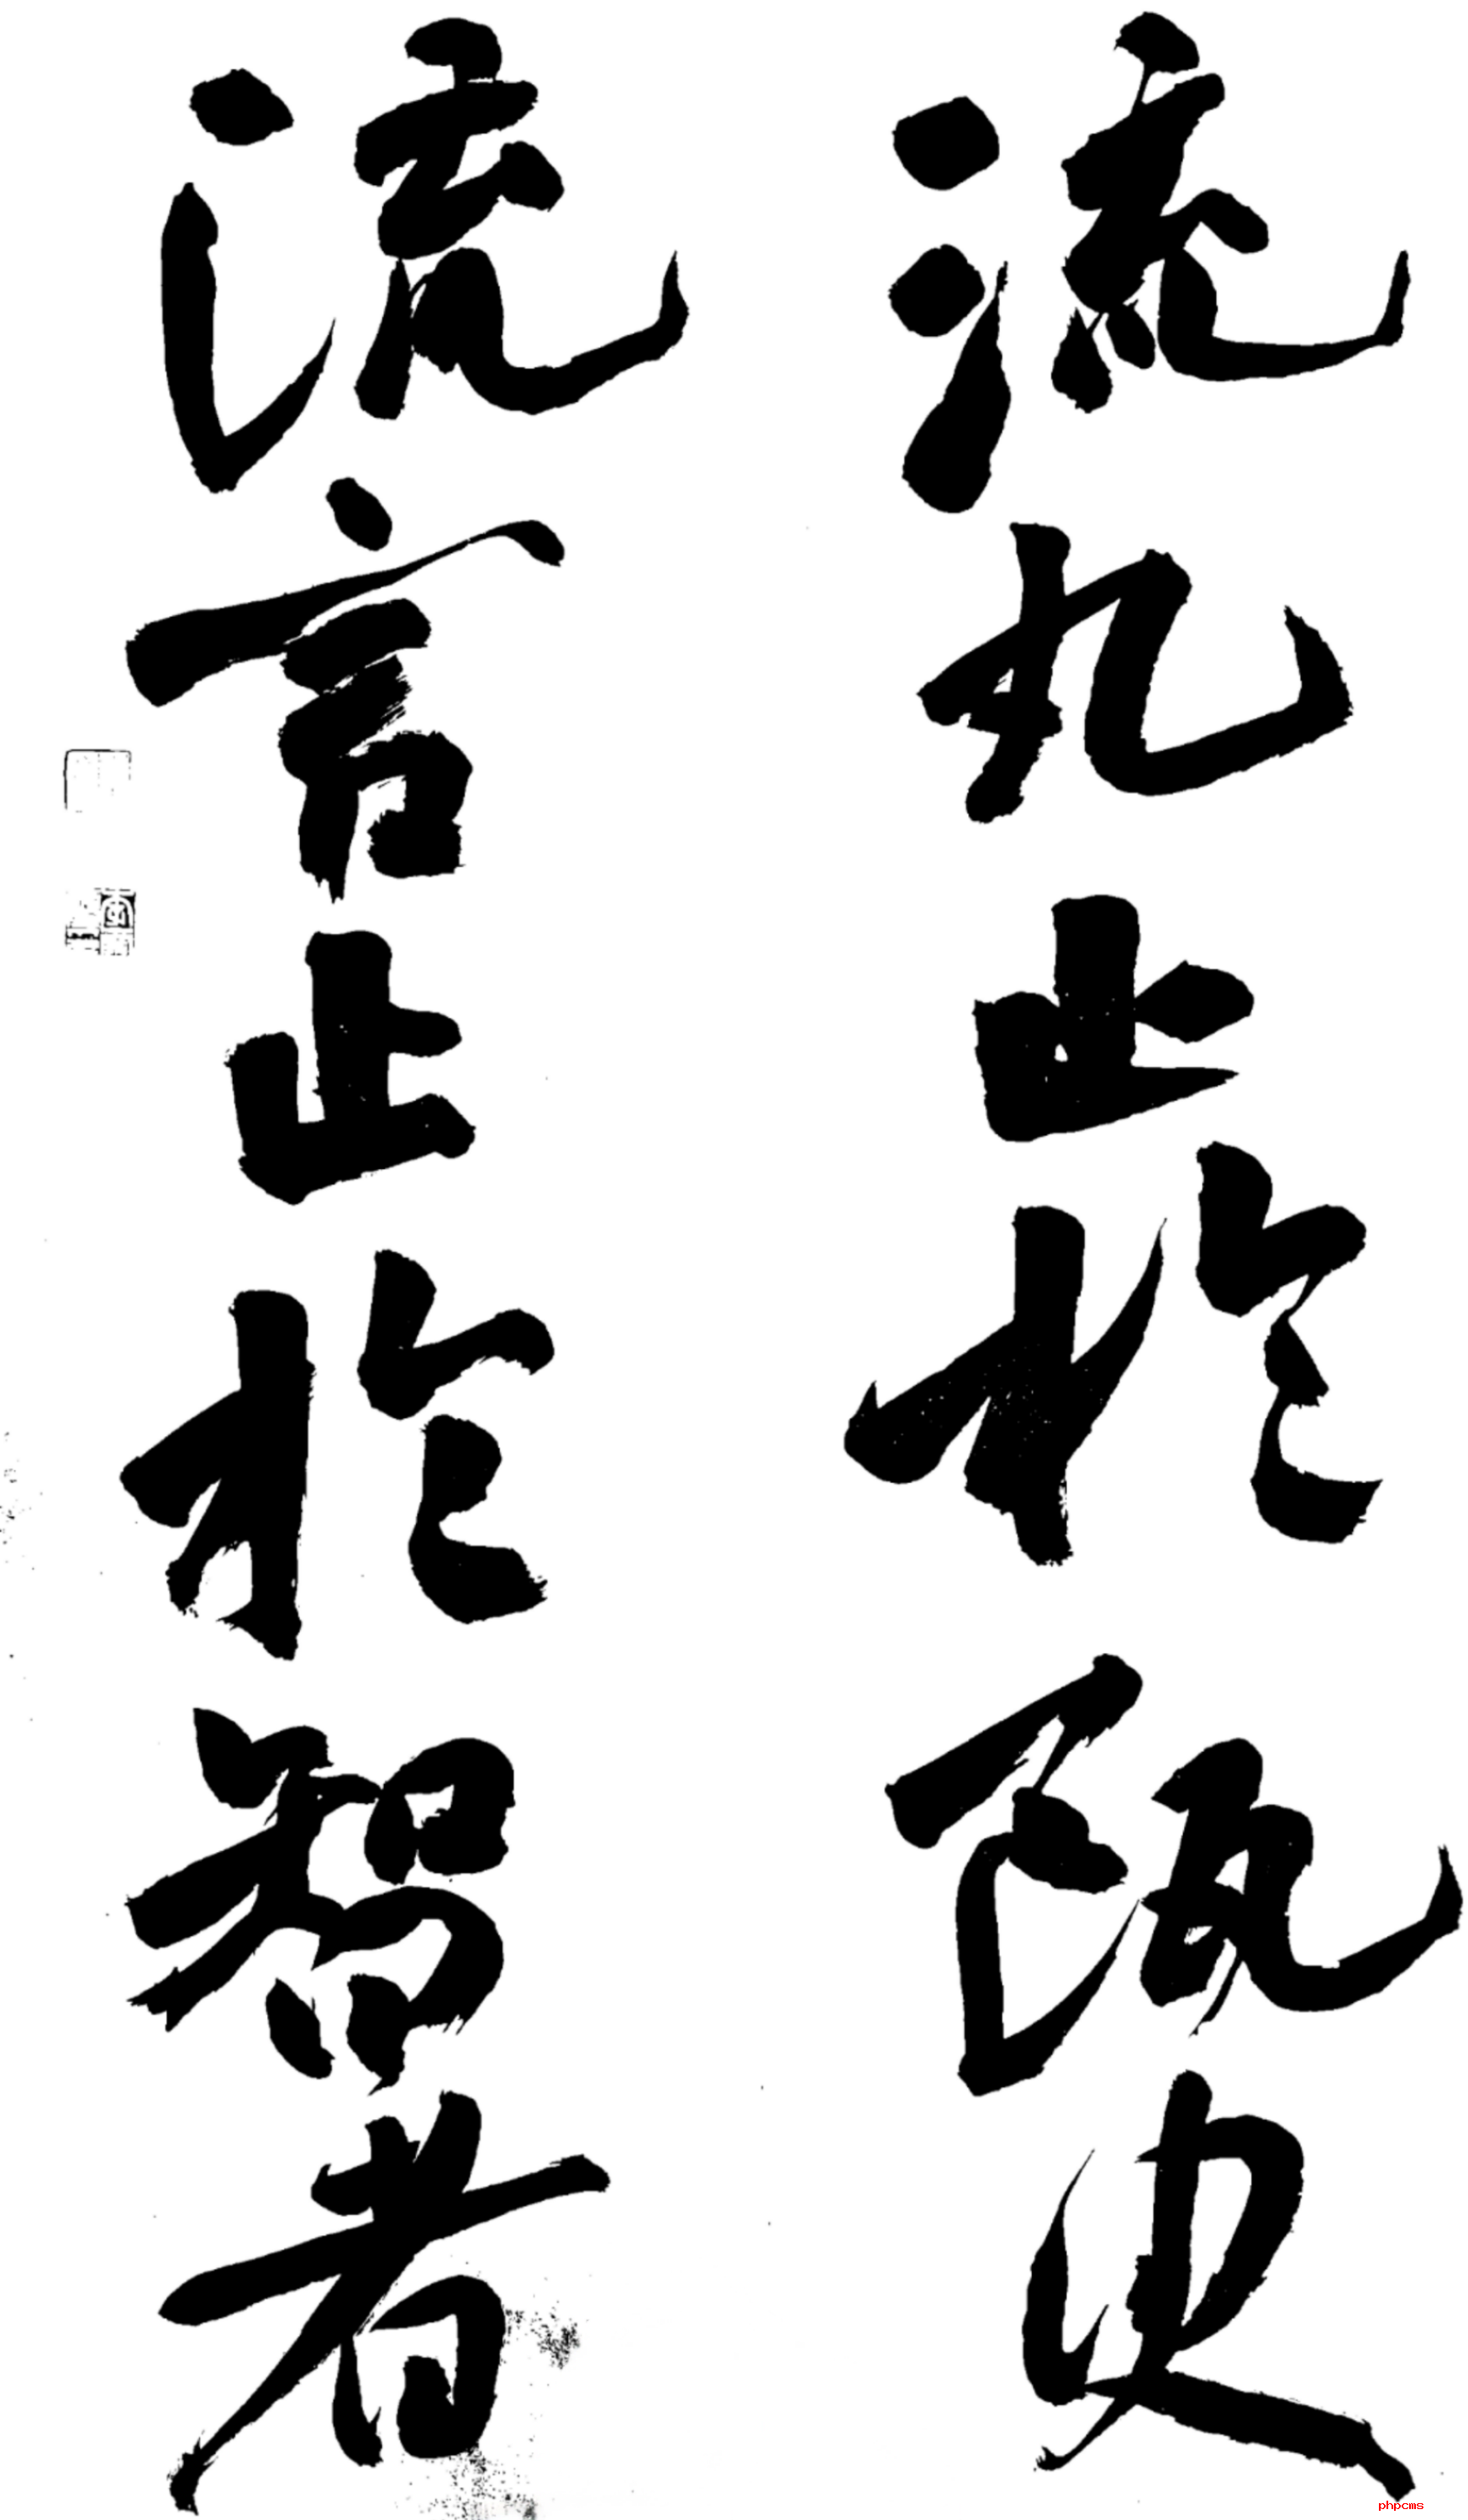 流丸止於甌臾
流言止於智者
phpcms